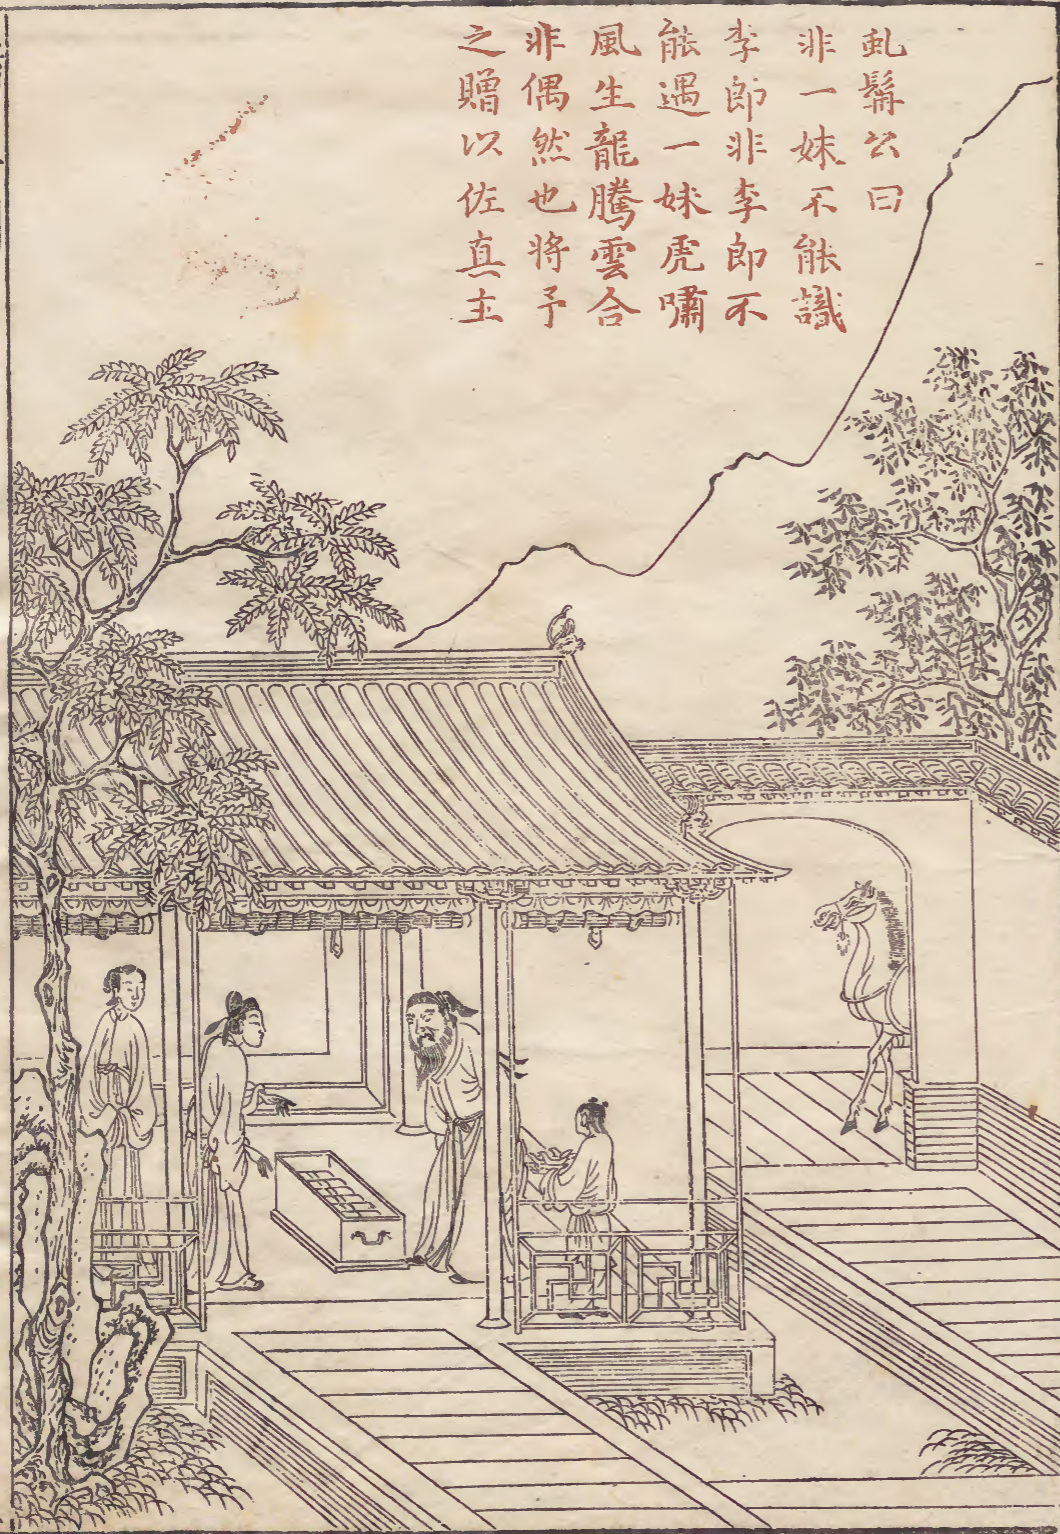 虬髯公曰
非一妹不能識
李郎非李郎不
能遇一妹虎嘯
風生龍騰雲合
非偶然也將予
之贈以佐真主